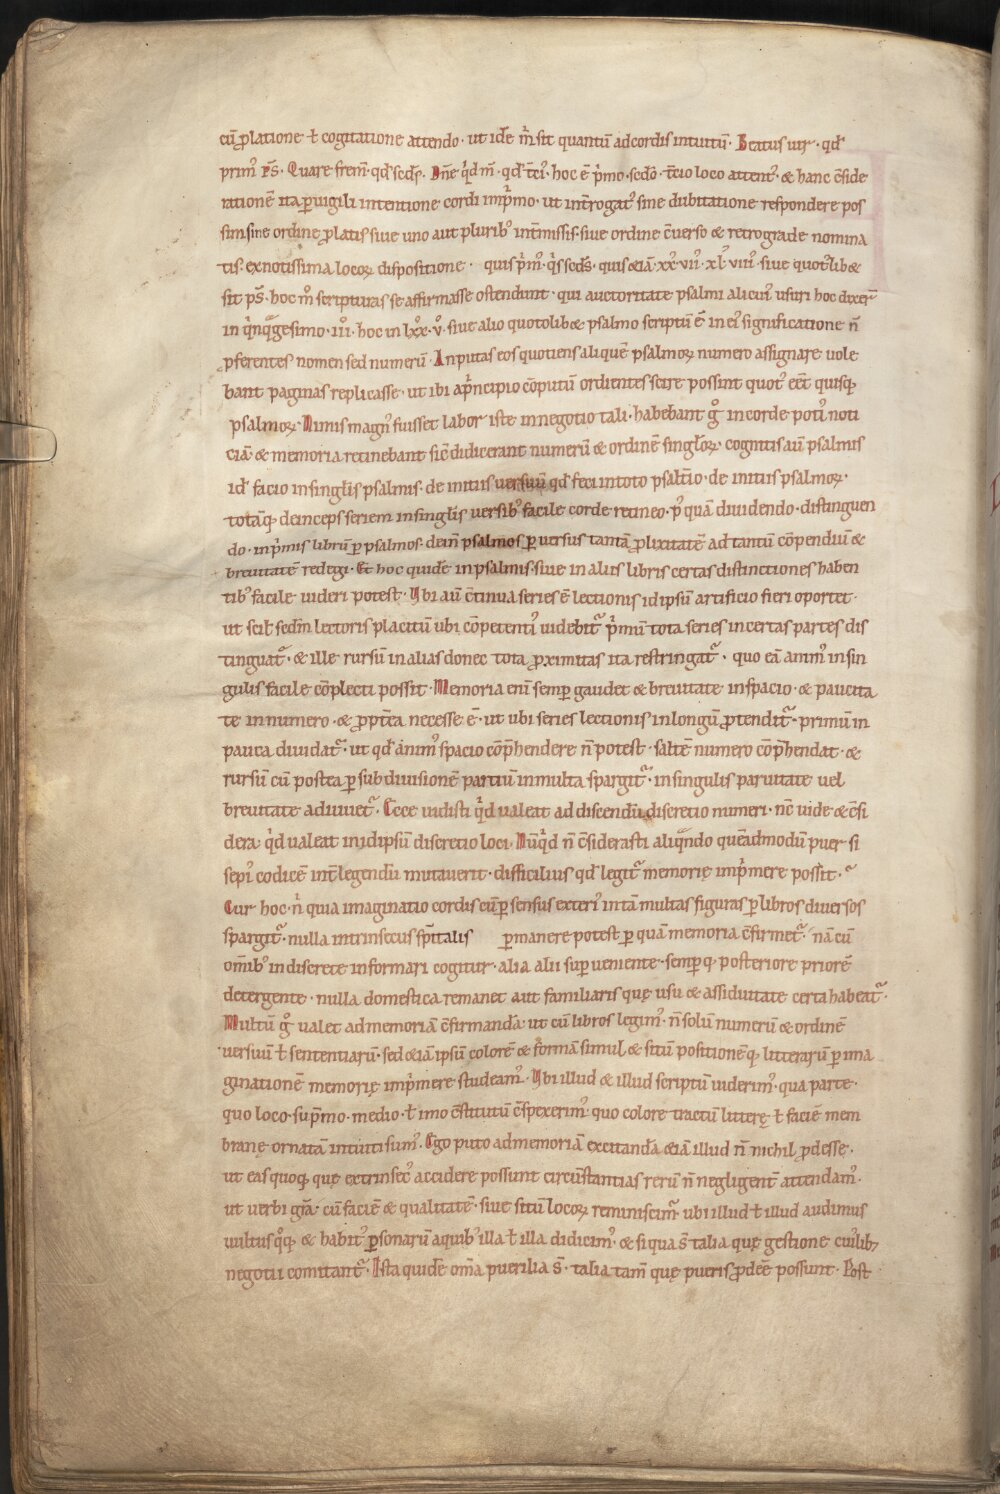 cū ꝓlatione ł cogitatione attendo · ut idē m̄ sit quantū ad cordis intuitū · Beatus uir · qđ
prim᷒ ps̄ · Quare frem̄ · qđ sedꝰ · Dn̄e qͥd m̄ · qđ t̄ciꝰ · hoc ē p̄mo · sedō · t̄cio loco attentꝰ · & hanc c̄side
rationē ita ꝑuigili intentione cordi imp̄mo · ut int̄rogatꝰ sine dubitatione respondere pos
sim · siue ordine ꝓlatis siue uno aut pluribꝰ int̄missis · siue ordine c̄uerso & retrograde nomina
tis · ex notissima locoꝝ dispositione · quis p̄mꝰ · qͥs seds̄ · quis &iā · xxꝰ · viiꝰ · xlꝰ · viiiꝰ · siue quotꝰlib&
sit ps̄ · hoc m̊ scripturas se affirmasse ostendunt · qui auctoritate psalmi alicuiꝰ usuri hoc dixer̄
in qͥnq̊gesimo · iiiͦ · hoc in lxxͦ · vͦ · siue alio quotolib& psalmo scriptū ē in eiꝰ significatione n̄
p̄ferentes nomen sed numerū · An putas eos quotiens aliquē psalmoꝝ numero assignare uole
bant paginas replicasse · ut ibi a p̄ncipio cōputū ordientes scire possint quotꝰ eēt quisqꝫ
psalmoꝝ · Nimis magnꝰ fuisset labor iste in negotio tali · habebant g̊ in corde potiꝰ noti
ciā · & memoria retinebant sic̄ didicerant numerū & ordinē singl̄oꝝ · cognitis aū psalmis
id facio in singl̄is psalmis · de initiis uersuū qđ feci in toto psalt̄io · de initiis psalmoꝝ ·
totāqꝫ deinceps seriem in singl̄is uersibꝰ facile corde retineo · pꝰ quā diuidendo · distinguen
do · inp̄mis librū ꝑ psalmos · dein̄ psalmos ꝑ uersus tantā ꝓlixitatē ad tantū cōpendiū &
breuitatē redegi · Et hoc quidē in psalmis · siue in aliis libris certas distinctiones haben
tibꝰ facile uideri potest · Vbi aū c̄tinua series ē lectionis id ipsū artificio fieri oportet ·
ut scił sedm̄ lectoris placitū ubi cōpetentiꝰ uidebit᷑ p̄mū tota series in certas partes dis
tinguat᷑ · & ille rursū in alias donec tota ꝓximitas ita restringat᷑ · quo eā animꝰ in sin
gulis facile cōplecti possit · Memoria enī semꝑ gaudet & breuitate in spacio · & paucita
te in numero · & ꝓpt̄ea necesse ē · ut ubi series lectionis in longū ꝓtendit᷑ · primū in
pauca diuidat᷑ · ut qđ animꝰ spacio cōp̄hendere n̄ potest · saltē numero cōp̄hendat · &
rursū cū postea ꝑ subdiuisionē partiū in multa spargit᷑ · in singulis paruitate uel
breuitate adiuuet᷑ · Ecce uidisti qͥd ualeat ad discendū discretio numeri · nc̄ uide & c̄si
dera · qͥd ualeat in id ipsū discretio loci · Nūqͥd n̄ c̄siderasti aliq̊ndo quēadmodū puer si
sepiꝰ codicē int̄ legendū mutauerit · difficilius qđ legit᷑ memorię imp̄mere possit ·
Cur hoc · n̄ quia imaginatio cordis cū ꝑ sensus exteriꝰ in tā multas figuras ꝑ libros diuersos
spargit᷑ · nulla intrinsecus sp̄italis ꝑmanere potest ꝑ quā memoria c̄firmet᷑ · nā cū
om̄ibꝰ indiscrete informari cogitur · alia alii suꝑueniente · semꝑqꝫ posteriore priorē
detergente · nulla domestica remanet aut familiaris quę usu & assiduitate certa habeat᷑ ·
Multū g̊ ualet ad memoriā c̄firmandā · ut cū libros legimꝰ · n̄ solū numerū & ordinē
uersuū ł sententiarū · sed &iā ipsū colorē & formā simul & situ positionēqꝫ litterarū ꝑ ima
ginationē memorię imp̄mere studeamꝰ · Vbi illud & illud scriptū uiderimꝰ · qua parte ·
quo loco · sup̄mo · medio · ł imo c̄stitutū c̄spexerimꝰ quo colore tractū litterę ł faciē mem
branę ornatā intuiti sumꝰ · Ego puto ad memoriā excitandā &iā illud n̄ nichil ꝓdesse ·
ut eas quoqꝫ quę extrinsecꝰ accidere possunt circūstantias rerū n̄ negligent̄ attendamꝰ ·
ut uerbi grā · cū faciē & qualitatē · siue situ locoꝝ reminiscim᷑ ubi illud ł illud audimus
uultus q̊qꝫ & habitꝰ ꝑsonarū a quibꝰ illa ł illa didicimꝰ · & si qua s̄ talia quę gestionē cuiꝰlibꝫ
negotii comitant᷑ · Ista quidē om̄a puerilia s̄ · talia tam̄ quę pueris ꝓdeē possunt · Post